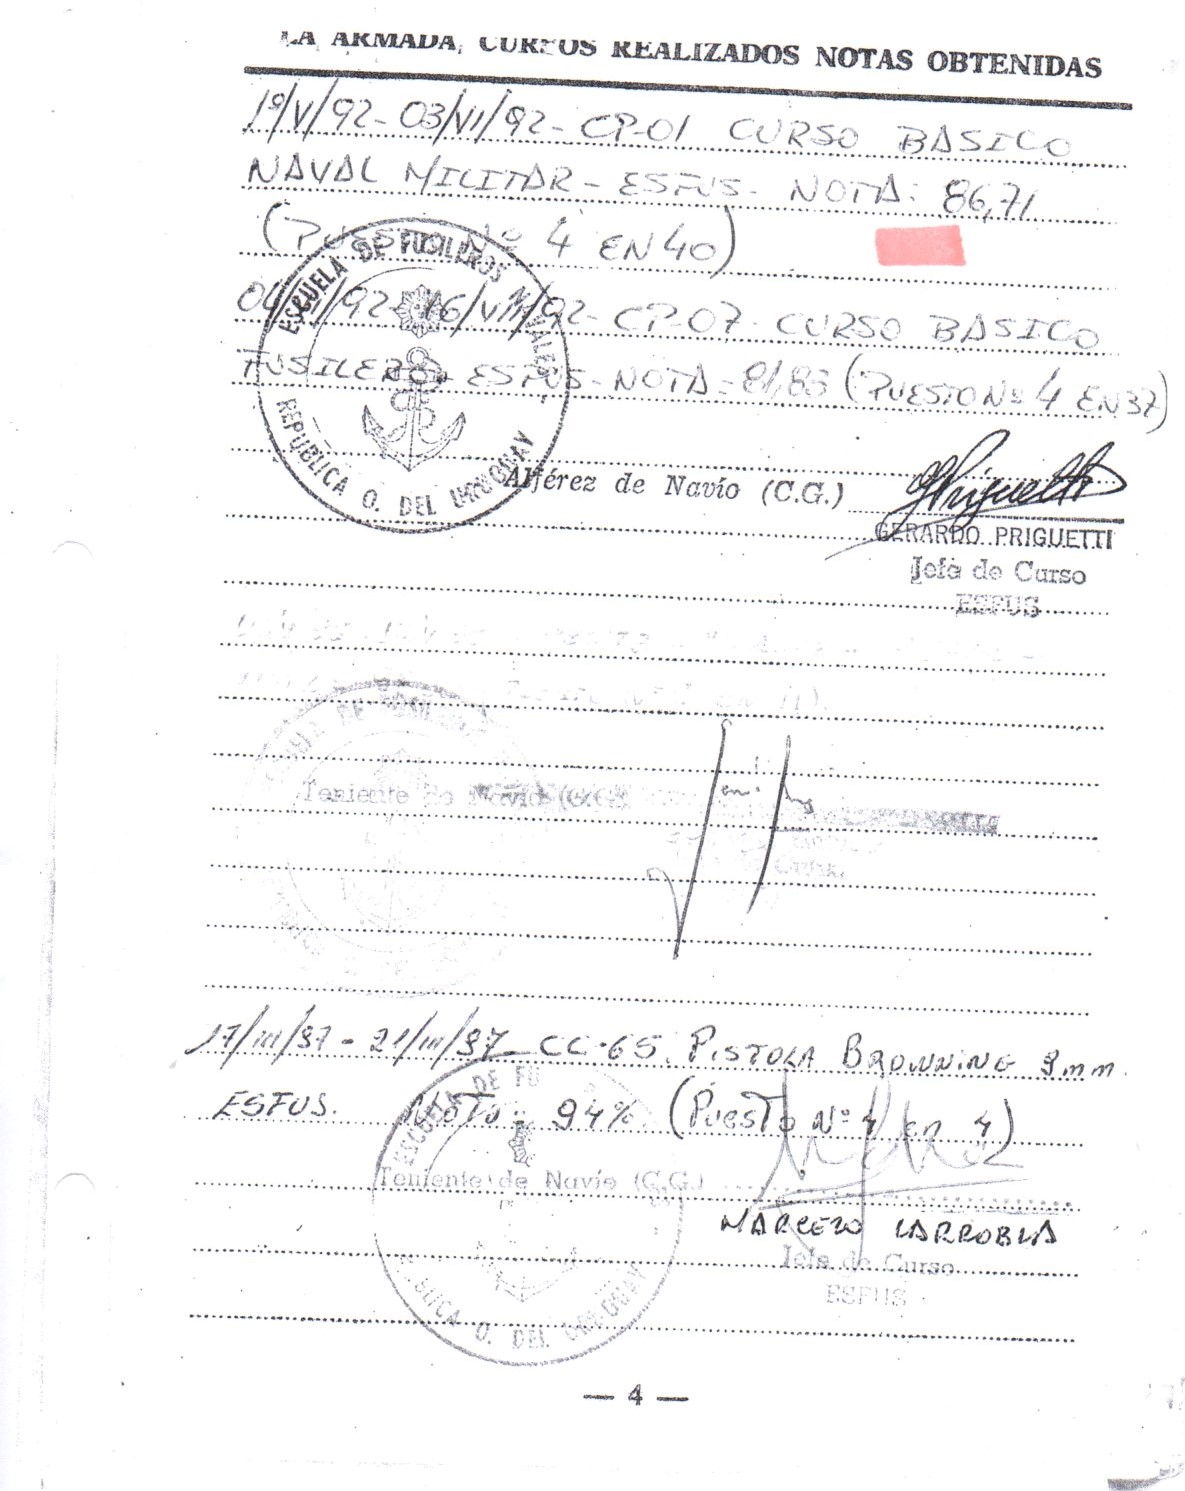 LA ARMADA, CURSOS REALIZADOS NOTAS OBTENIDAS
19/V/92-03/VI/92-CP-01 CURSO BASICO
NAVAL MILITAR-ESFUS- NOTA: 86,71
(PUESTO Nº 4 EN 40)
/92-16/VII/92-CP-07-CURSO BASICO
FUSILERO-ESFUS-NOTA-81,83 (PUESTO Nº 4 EN 37)
ESCUELA DE FUSILEROS NAVALES
REPUBLICA O. DEL URUGUAY
Alférez de Navío (C.G.)
GERARDO PRIGUETTI
Jefe de Curso
ESFUS
Teniente de Navío (C.G.
17/III/97-21/III/97 CC-65. PISTOLA BROWNING 9mm.
ESFUS. NOTA: 94% (PUESTO Nº 4 en 4)
ESCUELA DE FU
Teniente de Navío (C.G.)
MARCELO LARROBLA
Jefe de Curso
ESFUS
BLICA O. DEL URUGUAY
— 4 —